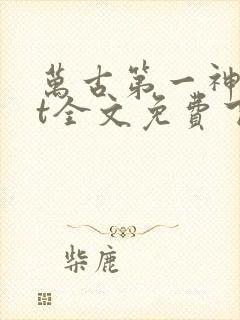 萬古第一神
t全文免費
柴鹿